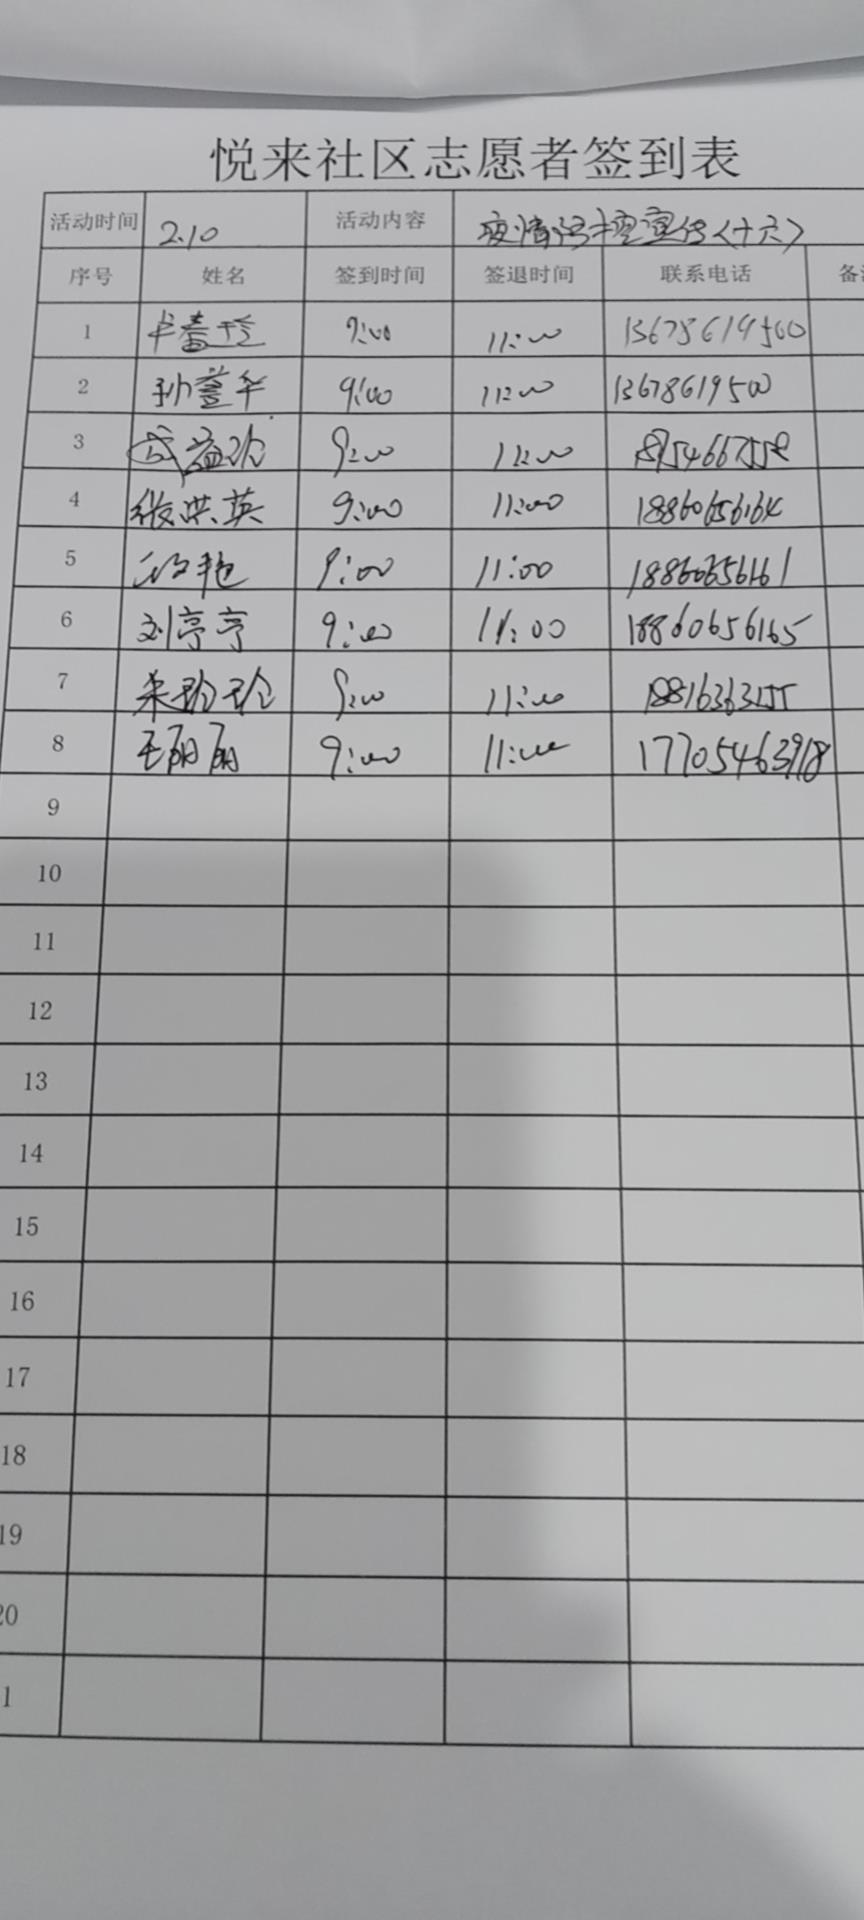 悦来社区志愿者签到表
活动时间 2.10 活动内容 疫情防控宣传（十六）
序号 姓名 签到时间 签退时间 联系电话 备
1 9:00 11:00 13678619500
2 孙 华 9:00 11:00 13678619500
3 9:00 11:00
4 张洪英 9:00 11:00 18860656164
5 艳 9:00 11:00 18860656161
6 刘亭亭 9:00 11:00 18860656165
7 朱玲玲 9:00 11:00
8 王丽丽 9:00 11:00 17705463918
9
10
11
12
13
14
15
16
17
18
19
20
1